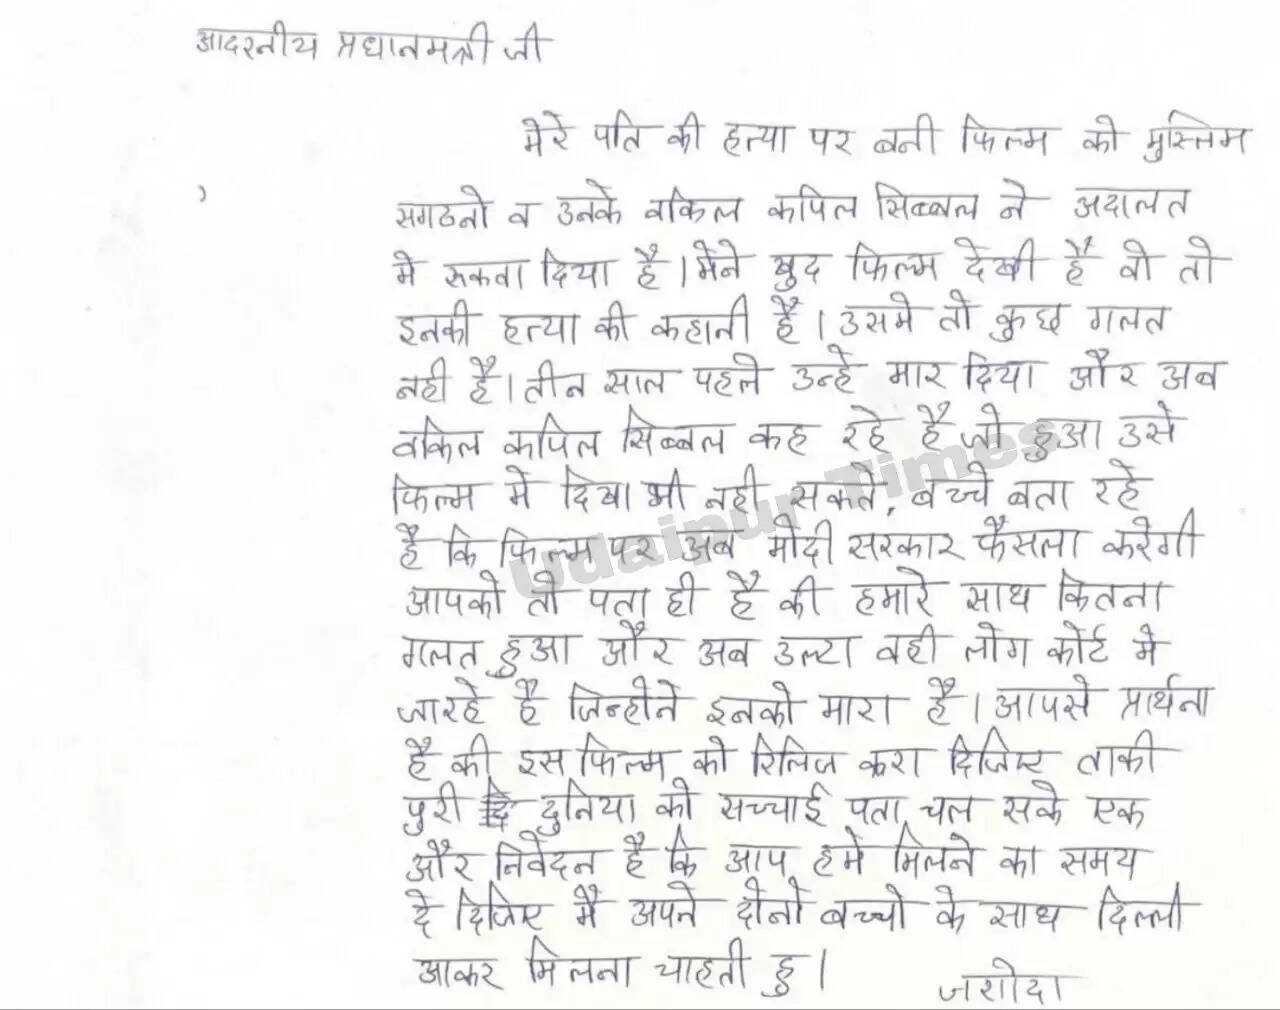 आदरनीय प्रधानमत्री जी
मेरे पति की हत्या पर बनी फिल्म को मुस्लिम
सगठनो व उनके वकिल कपिल सिब्बल ने अदालत
मे रुकवा दिया है। मैने खुद फिल्म देखी है वो तो
इनकी हत्या की कहानी है। उसमे तो कुछ गलत
नही है। तीन साल पहले उन्हे मार दिया और अब
वकिल कपिल सिब्बल कह रहे है जो हुआ उसे
फिल्म मे दिखा भी नही सकते, बच्चे बता रहे
है कि फिल्म पर अब मोदी सरकार फैसला करेगी
आपको तो पता ही है की हमारे साथ कितना
गलत हुआ और अब उल्टा वही लोग कोर्ट मे
जा रहे है जिन्होने इनको मारा है। आपसे प्रार्थना
है की इस फिल्म को रिलिज करा दिजिए ताकी
पुरी दुनिया को सच्चाई पता चल सके एक
और निवेदन है कि आप हमे मिलने का समय
दे दिजिए मै अपने दोनो बच्चो के साथ दिल्ली
आकर मिलना चाहती हु।
जशोदा
Udaipur Times